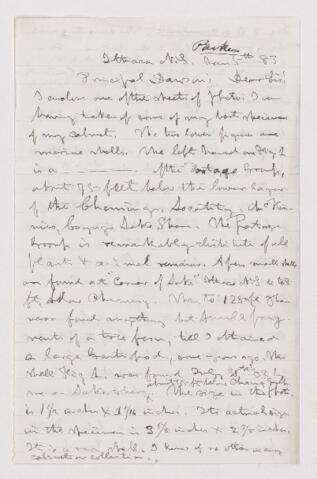 Parker
Ithaca N.Y. Jan 5th 83
Principal Dawson; Dear Sir;
I enclose one of the sheets of Photos I am
having taken of some of my best specimens
of my cabinet. The two lower figures are
marine shells. The left hand on Fig 1
is a of the Portage Group,
about 75 feet below the lower layers
of the Chemung, Locality,
Cayuga Lake Shore. The Portage
Group is remarkably destitute of all
plants & animal remains. A few small shells
are found at "Corner of Lake" Ithaca N.Y.
ft below Chemung. We
never found anything but small frag-
ments of a tree fern, till I obtained
a large Gasteropod, one year ago. The
shell Fig 1, was found July 82 by
me on Lake Shore about ft below Chemung
The size in the photo
is 1 1/2 inches x 1 1/16 inches. Its actual size
in the specimen is 3 inches x 2 inches.
It is a rare shell. I know of no other in any
collection.